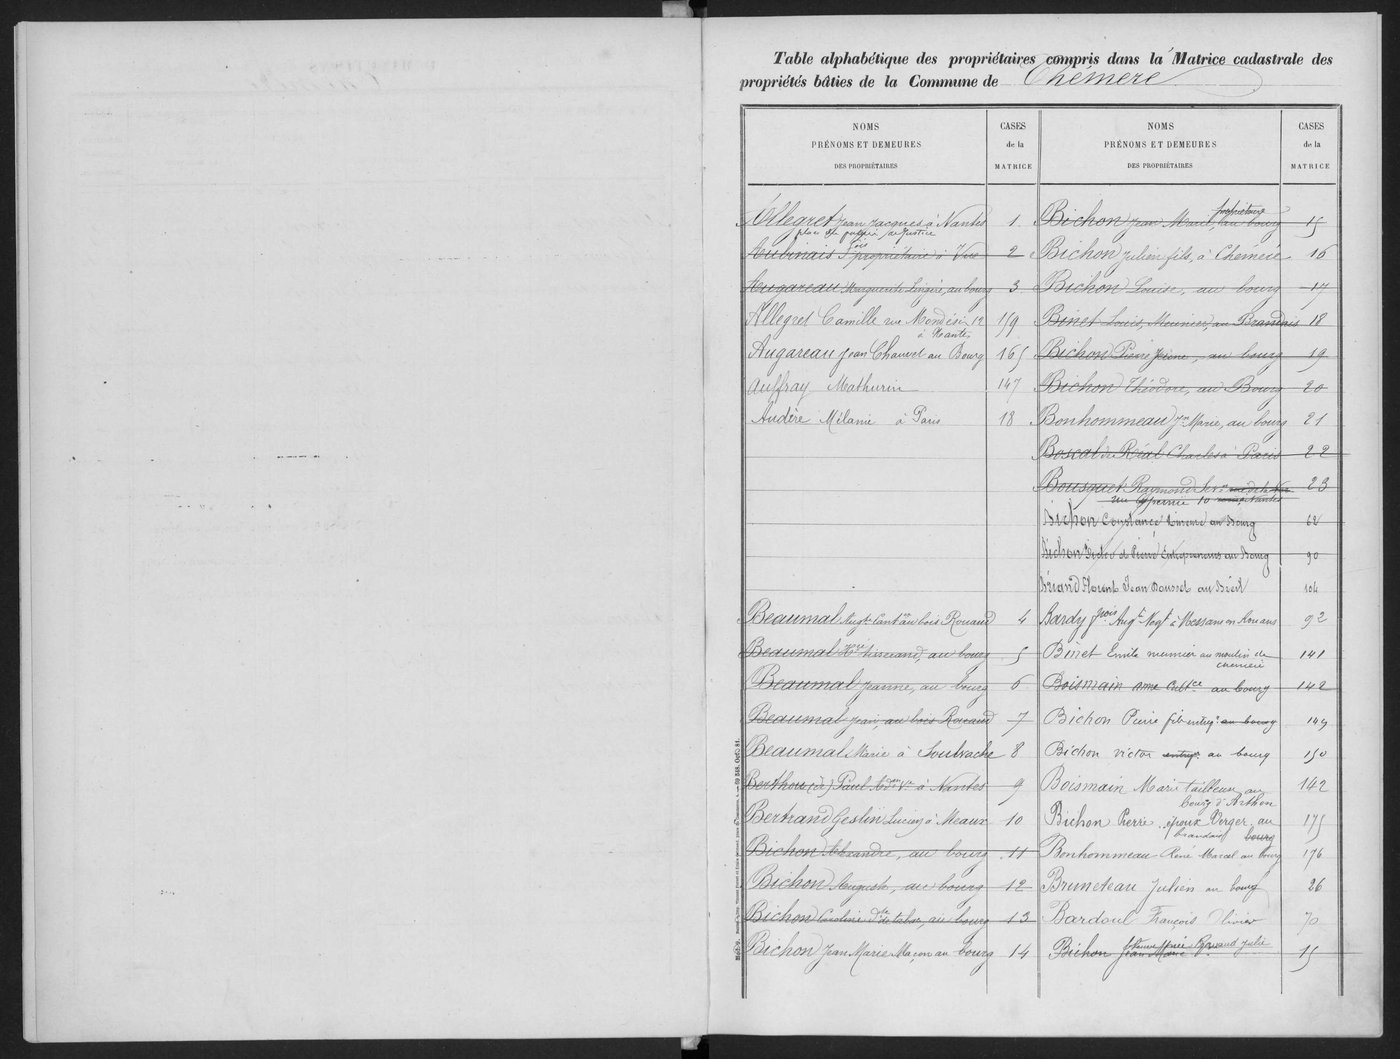 Table alphabétique des propriétaires compris dans la Matrice cadastrale des
propriétés bâties de la Commune de Chémeré
NOMS
PRÉNOMS ET DEMEURES
DES PROPRIÉTAIRES
CASES
de la
MATRICE
NOMS
PRÉNOMS ET DEMEURES
DES PROPRIÉTAIRES
CASES
de la
MATRICE
Allegret Jean Jacques à Nantes 1
place du palais de Justice
Aubinais propriétaire à Vue 2
Augareau Marguerite Lingère, au bourg 3
Allegret Camille rue Mondésir 12 159
à Nantes
Augareau Jean Chauvet au Bourg 165
Auffray Mathurin 147
Audère Mélanie à Paris 18
Beaumal Augte au bois Rouaud 4
Beaumal tisserand, au bourg 5
Beaumal Jeanne, au bourg 6
Beaumal Jean, au bois Rouaud 7
Beaumal Marie à Soulvache 8
Berthou (de) Paul à Nantes 9
Bertrand Geslin Lucien à Meaux 10
Bichon Alexandre, au bourg 11
Bichon Auguste, au bourg 12
Bichon Caroline de tabac, au bourg 13
Bichon Jean Marie Maçon au bourg 14
propriétaire
Bichon Jean Marie, au bourg 15
Bichon Julien fils, à Chéméré 16
Bichon Louise, au bourg 17
Binet Louis, Meunier, au Brandais 18
Bichon Pierre jeune, au bourg 19
Bichon Théodore, au Bourg 20
Bonhommeau Jn Marie, au bourg 21
Boscal de Réal Charles à Paris 22
Bousquet Raymond 23
rue 10 Nantes
Bichon Constance au Bourg 62
Bichon et Pierre Entrepreneurs au Bourg 90
Briand Florent Jean Rousset au Breil 104
Bardy Augte Negt à Messan en Rouans 92
Binet Emile meunier au moulin de 141
chemeré
Boismain au bourg 142
Bichon Pierre fils entrepr au bourg 149
Bichon Victor entrepr au bourg 150
Boismain Marie tailleur au 142
bourg d'Arthon
Bichon Pierre époux Verger au 175
brandais bourg
Bonhommeau René Marcel au bourg 176
Bruneteau Julien au bourg 26
Bardoul François Olivier 70
Veuve née Rouaud Julie
Bichon Jean Marie 15